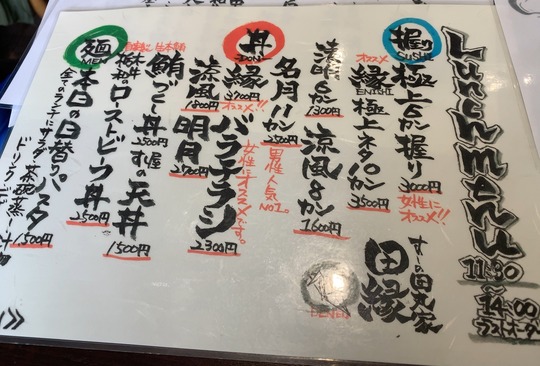 Lunch menu
11:30
〜
14:00
ラストオーダー
握り
SUSHI
極上6カン握り
3000円
女性に
オススメ!!
オススメ
縁
ENISHI
極上ネタ10カン
3500円
清明6カン
1300円
涼風8カン
1600円
名月11カン
2500円
男性人気
NO1。
すしの田丸家
田縁
DENEN
丼
DON
縁
3200円
オススメ!!
バラチラシ
2300円
女性に
オススメです。
涼風
1800円
明月
2500円
生本鮪
鮪づくし丼
2500円
天丼
1500円
ローストビーフ丼
2500円
麺
MEN
本日の日替りパスタ
1500円
全てのランチにサラダ 茶碗蒸し